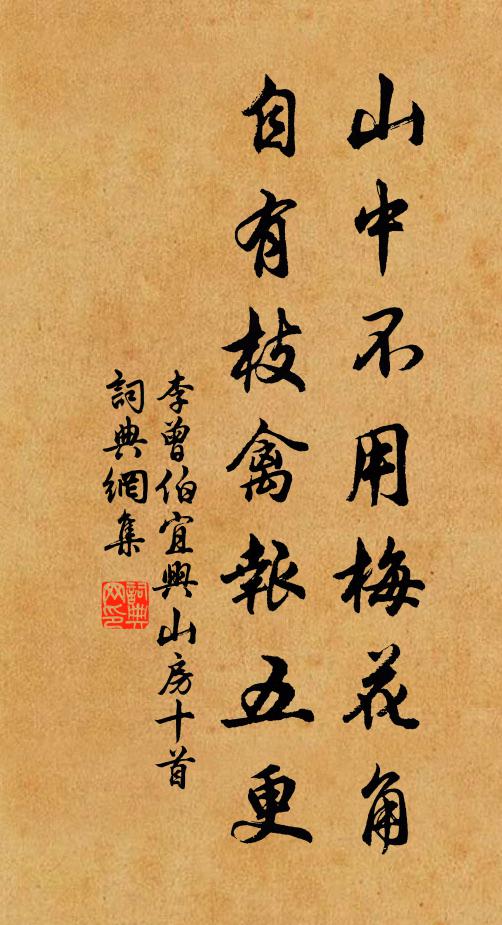 山中不用梅花角
自有枝禽報五更
李曾伯宜興山房十首
詞典網集
詞典網印